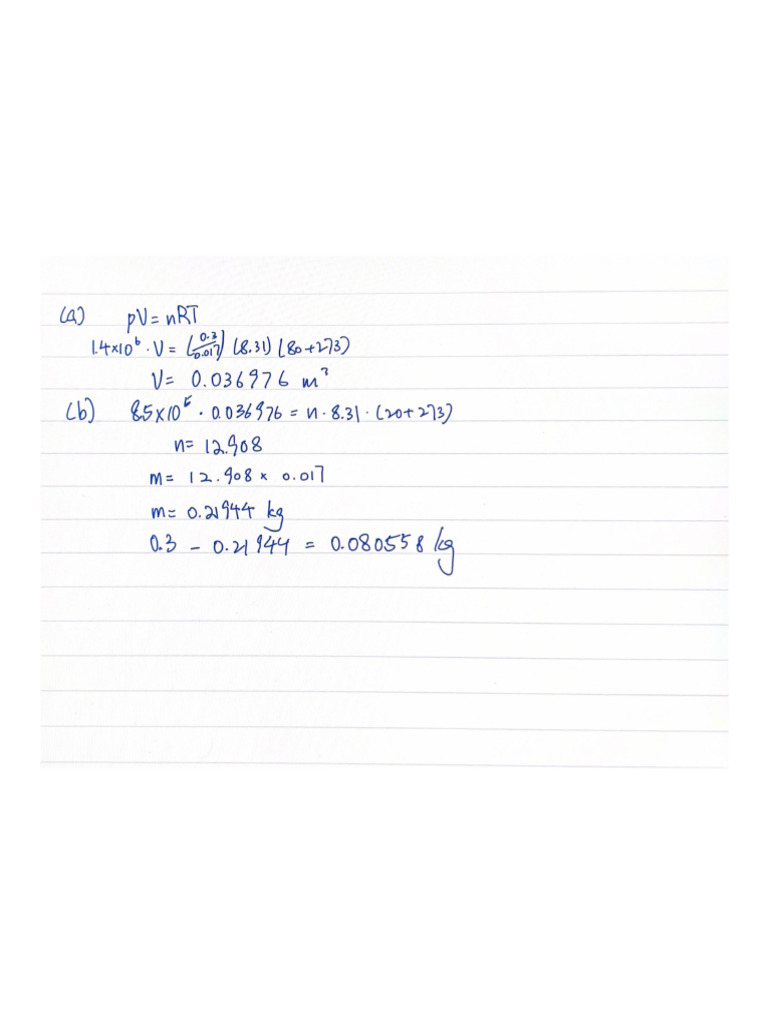 (a) pV = nRT
1.4×10⁶ · V = (0.3/0.017) (8.31) (80+273)
V = 0.036976 m³
(b) 8.5×10⁵ · 0.036976 = n · 8.31 · (20+273)
n = 12.908
m = 12.908 × 0.017
m = 0.21944 kg
0.3 - 0.21944 = 0.080558 kg